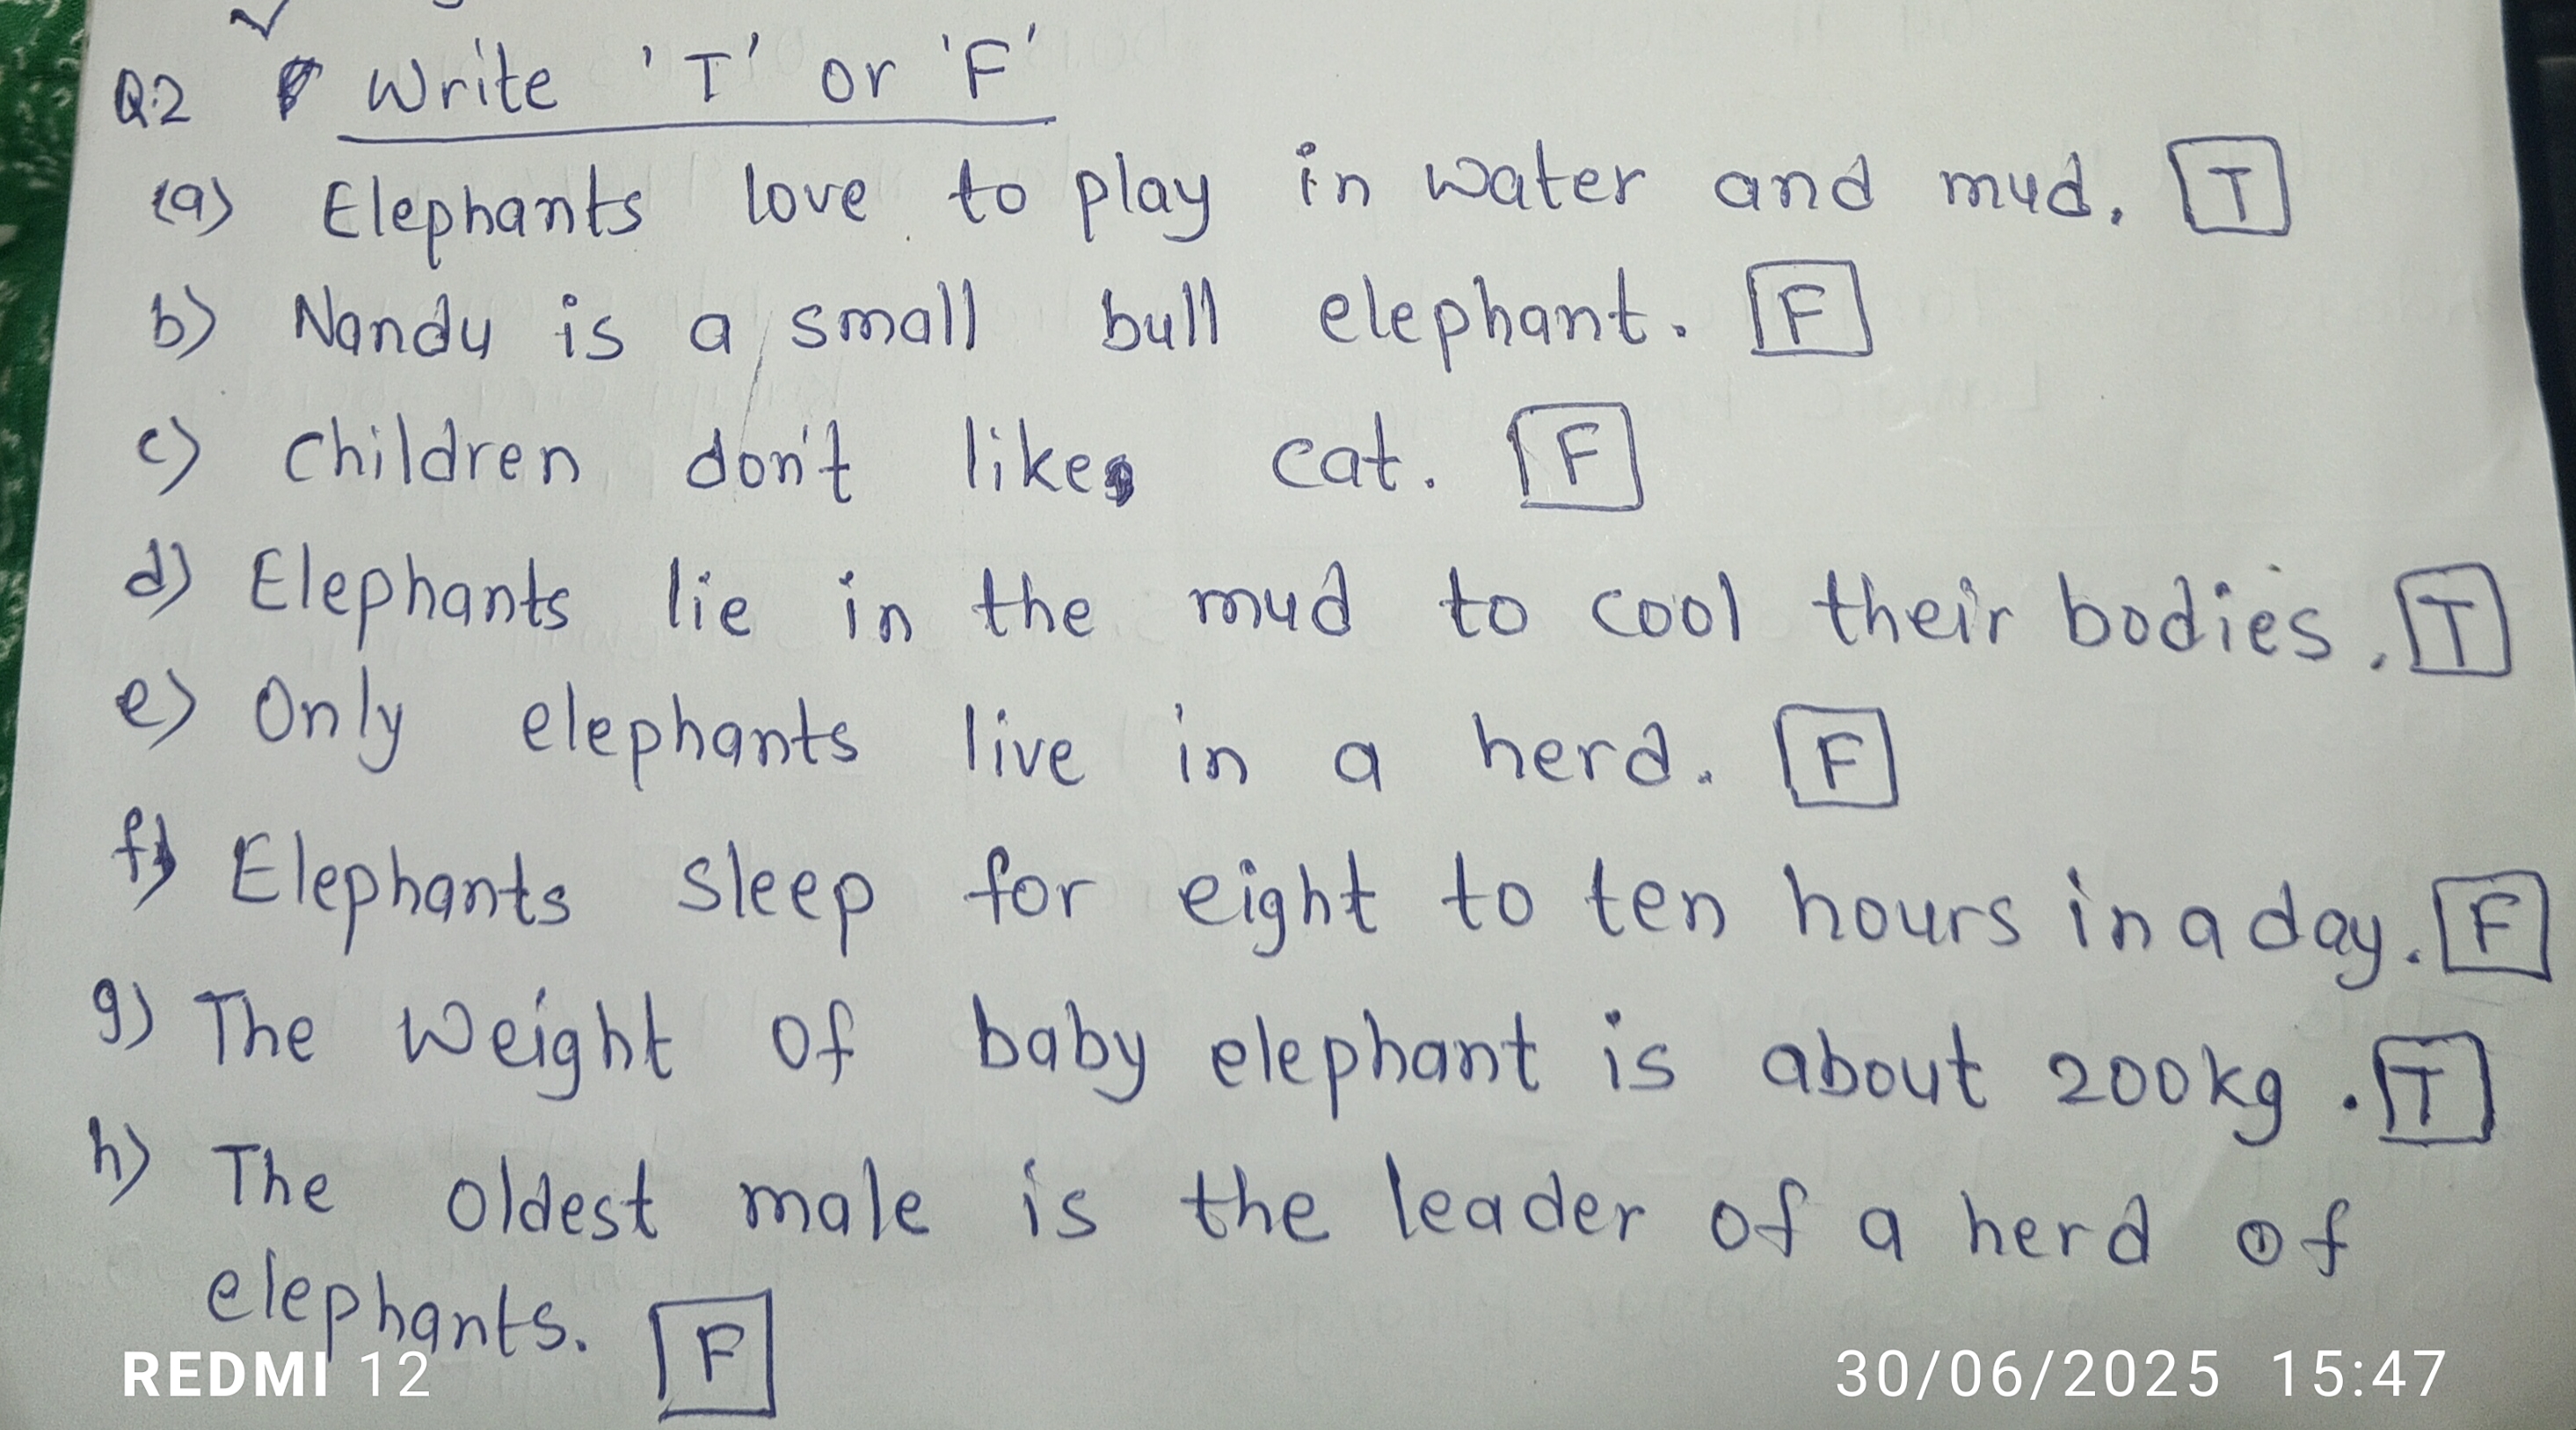 Q.2 Write 'T' or 'F'
(a) Elephants love to play in water and mud. T
b) Nandu is a small bull elephant. F
c) Children don't like cat. F
d) Elephants lie in the mud to cool their bodies. T
e) Only elephants live in a herd. F
f) Elephants sleep for eight to ten hours in a day. F
g) The weight of baby elephant is about 200kg. T
h) The oldest male is the leader of a herd of
elephants. F
REDMI 12
30/06/2025 15:47